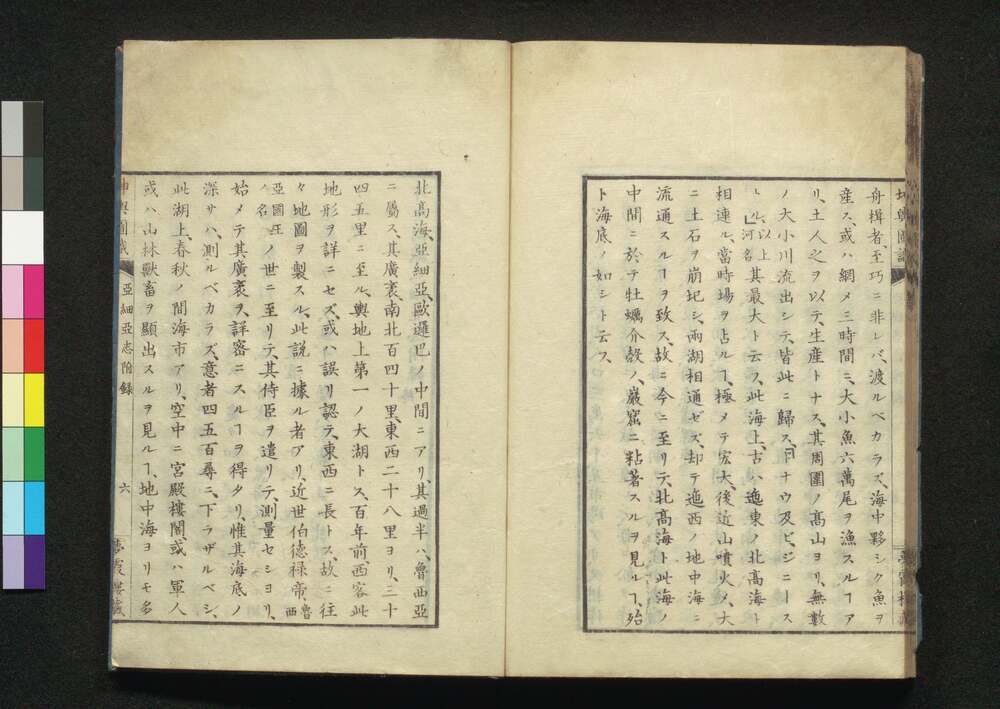 坤輿圖識
舟楫者、至巧ニ非レバ、渡ルベカラズ、海中夥シク魚ヲ
産ス、或ハ網メ三時間ニ、大小魚六萬尾ヲ漁スルヿア
リ、土人之ヲ以テ、生産トナス、其周圍ノ高山ヨリ、無數
ノ大小川流出シテ、皆此ニ歸ス、「ドナウ」及ビ「ジニース
トル」以上河名其最大ト云フ、此海上古ハ迤東ノ北高海ト
相連ル、當時場ヲ占ルヿ、極メテ宏大、後近山噴火メ、大
ニ土石ヲ崩圮シ、兩湖相通ゼズ、却テ迤西ノ地中海ニ
流通スルヿヲ致ス、故ニ今ニ至リテ、北高海ト此海ノ
中間ニ於テ、牡蠣介殼ノ、巖窟ニ粘著スルヲ見ルヿ、殆
ト海底ノ如シト云フ、
北高海、亞細亞、歐邏巴ノ中間ニアリ、其過半ハ、魯西亞
ニ屬ス、其廣袤、南北百四十里、東西二十八里ヨリ、三十
四五里ニ至ル、輿地上第一ノ大湖トス、百年前、西客此
地形ヲ詳ニセズ、或ハ誤リ認テ、東西ニ長トス、故ニ往
々地圖ヲ製スル、此説ニ據ル者アリ、近世伯德禄帝、魯西
亞國王ノ名ノ世ニ至リテ、其侍臣ヲ遣リテ、測量セシヨリ、
始メテ其廣袤ヲ、詳密ニスルヿヲ得タリ、惟其海底ノ
深サハ、測ルベカラズ、意者四五百尋ニ、下ラザルベシ、
此湖上、春秋ノ間海市アリ、空中ニ宮殿樓閣、或ハ軍人
或ハ山林獸畜ヲ顯出スルヲ見ルヿ、地中海ヨリモ多
坤輿圖識
亞細亞志附録
六
夢霞樓藏